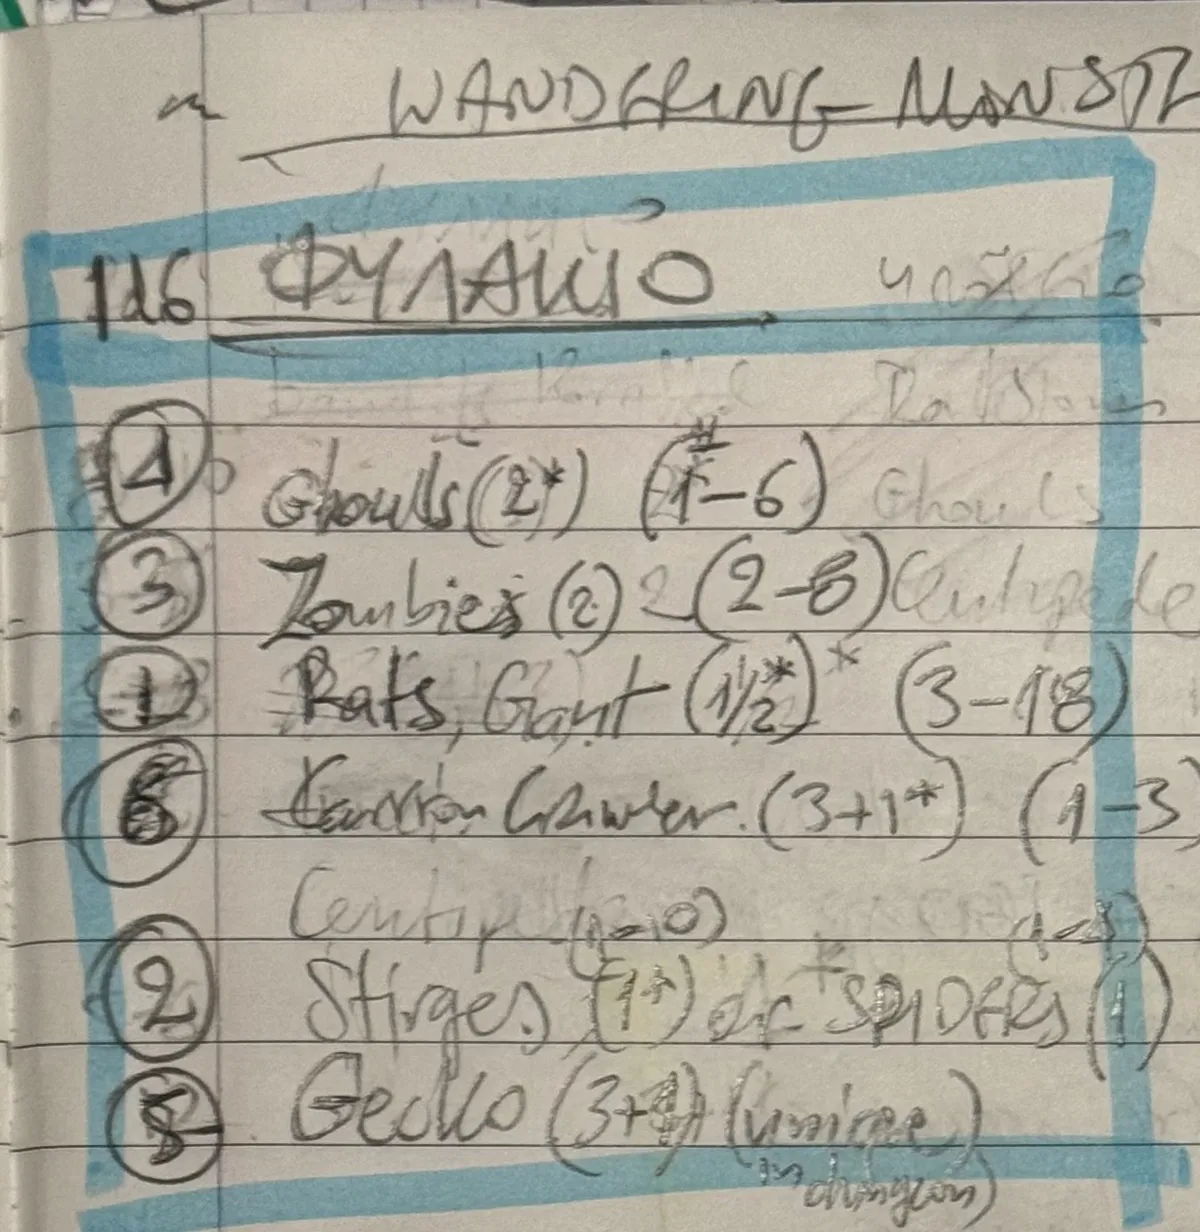 WANDERING MONST
1d6 ΦΥΛΑΚΙΟ
4 Ghouls (2*) (1-6) Ghouls
3 Zombies (2) (2-8) Centipede
1 Rats, Giant (1/2*)* (3-18)
6 Carrion Crawler. (3+1*) (1-3)
(1-10)
2 Stirges (1*) or SPIDERS (1)
5 Gecko (unique
in dungeon)